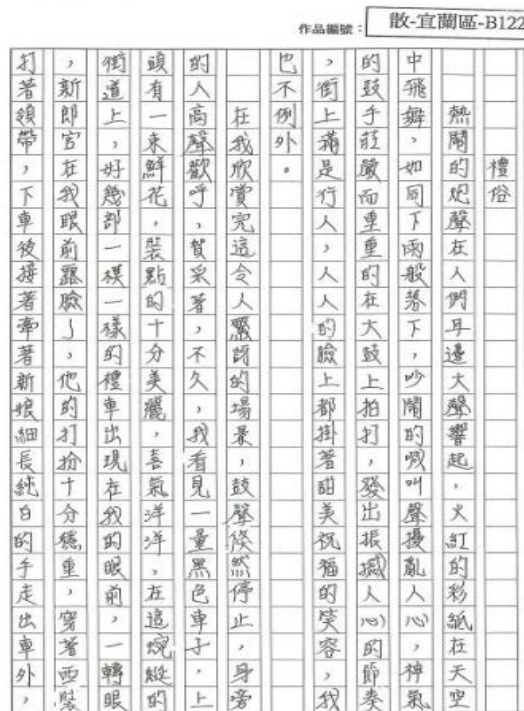 作品編號：散-宜蘭區-B122
禮俗
熱鬧的炮聲在人們耳邊大聲響起，火紅的彩紙在天空
中飛舞，如同下雨般落下，吵鬧的喊叫聲擾亂人心，神氣
的鼓手莊嚴而重重的在大鼓上拍打，發出振撼人心的節奏
，街上滿是行人，人人的臉上都掛著甜美祝福的笑容，我
也不例外。
在我欣賞完這令人驚訝的場景，鼓聲倏然停止，身旁
的人高聲歡呼，賀采著，不久，我看見一量黑色車子，上
頭有一束鮮花，裝點的十分美麗，喜氣洋洋，在這蜿蜒的
街道上，好幾部一模一樣的禮車出現在我的眼前，一轉眼
，新郎官在我眼前露臉了，他的打扮十分穩重，穿著西裝
打著領帶，下車後接著牽著新娘細長純白的手走出車外，